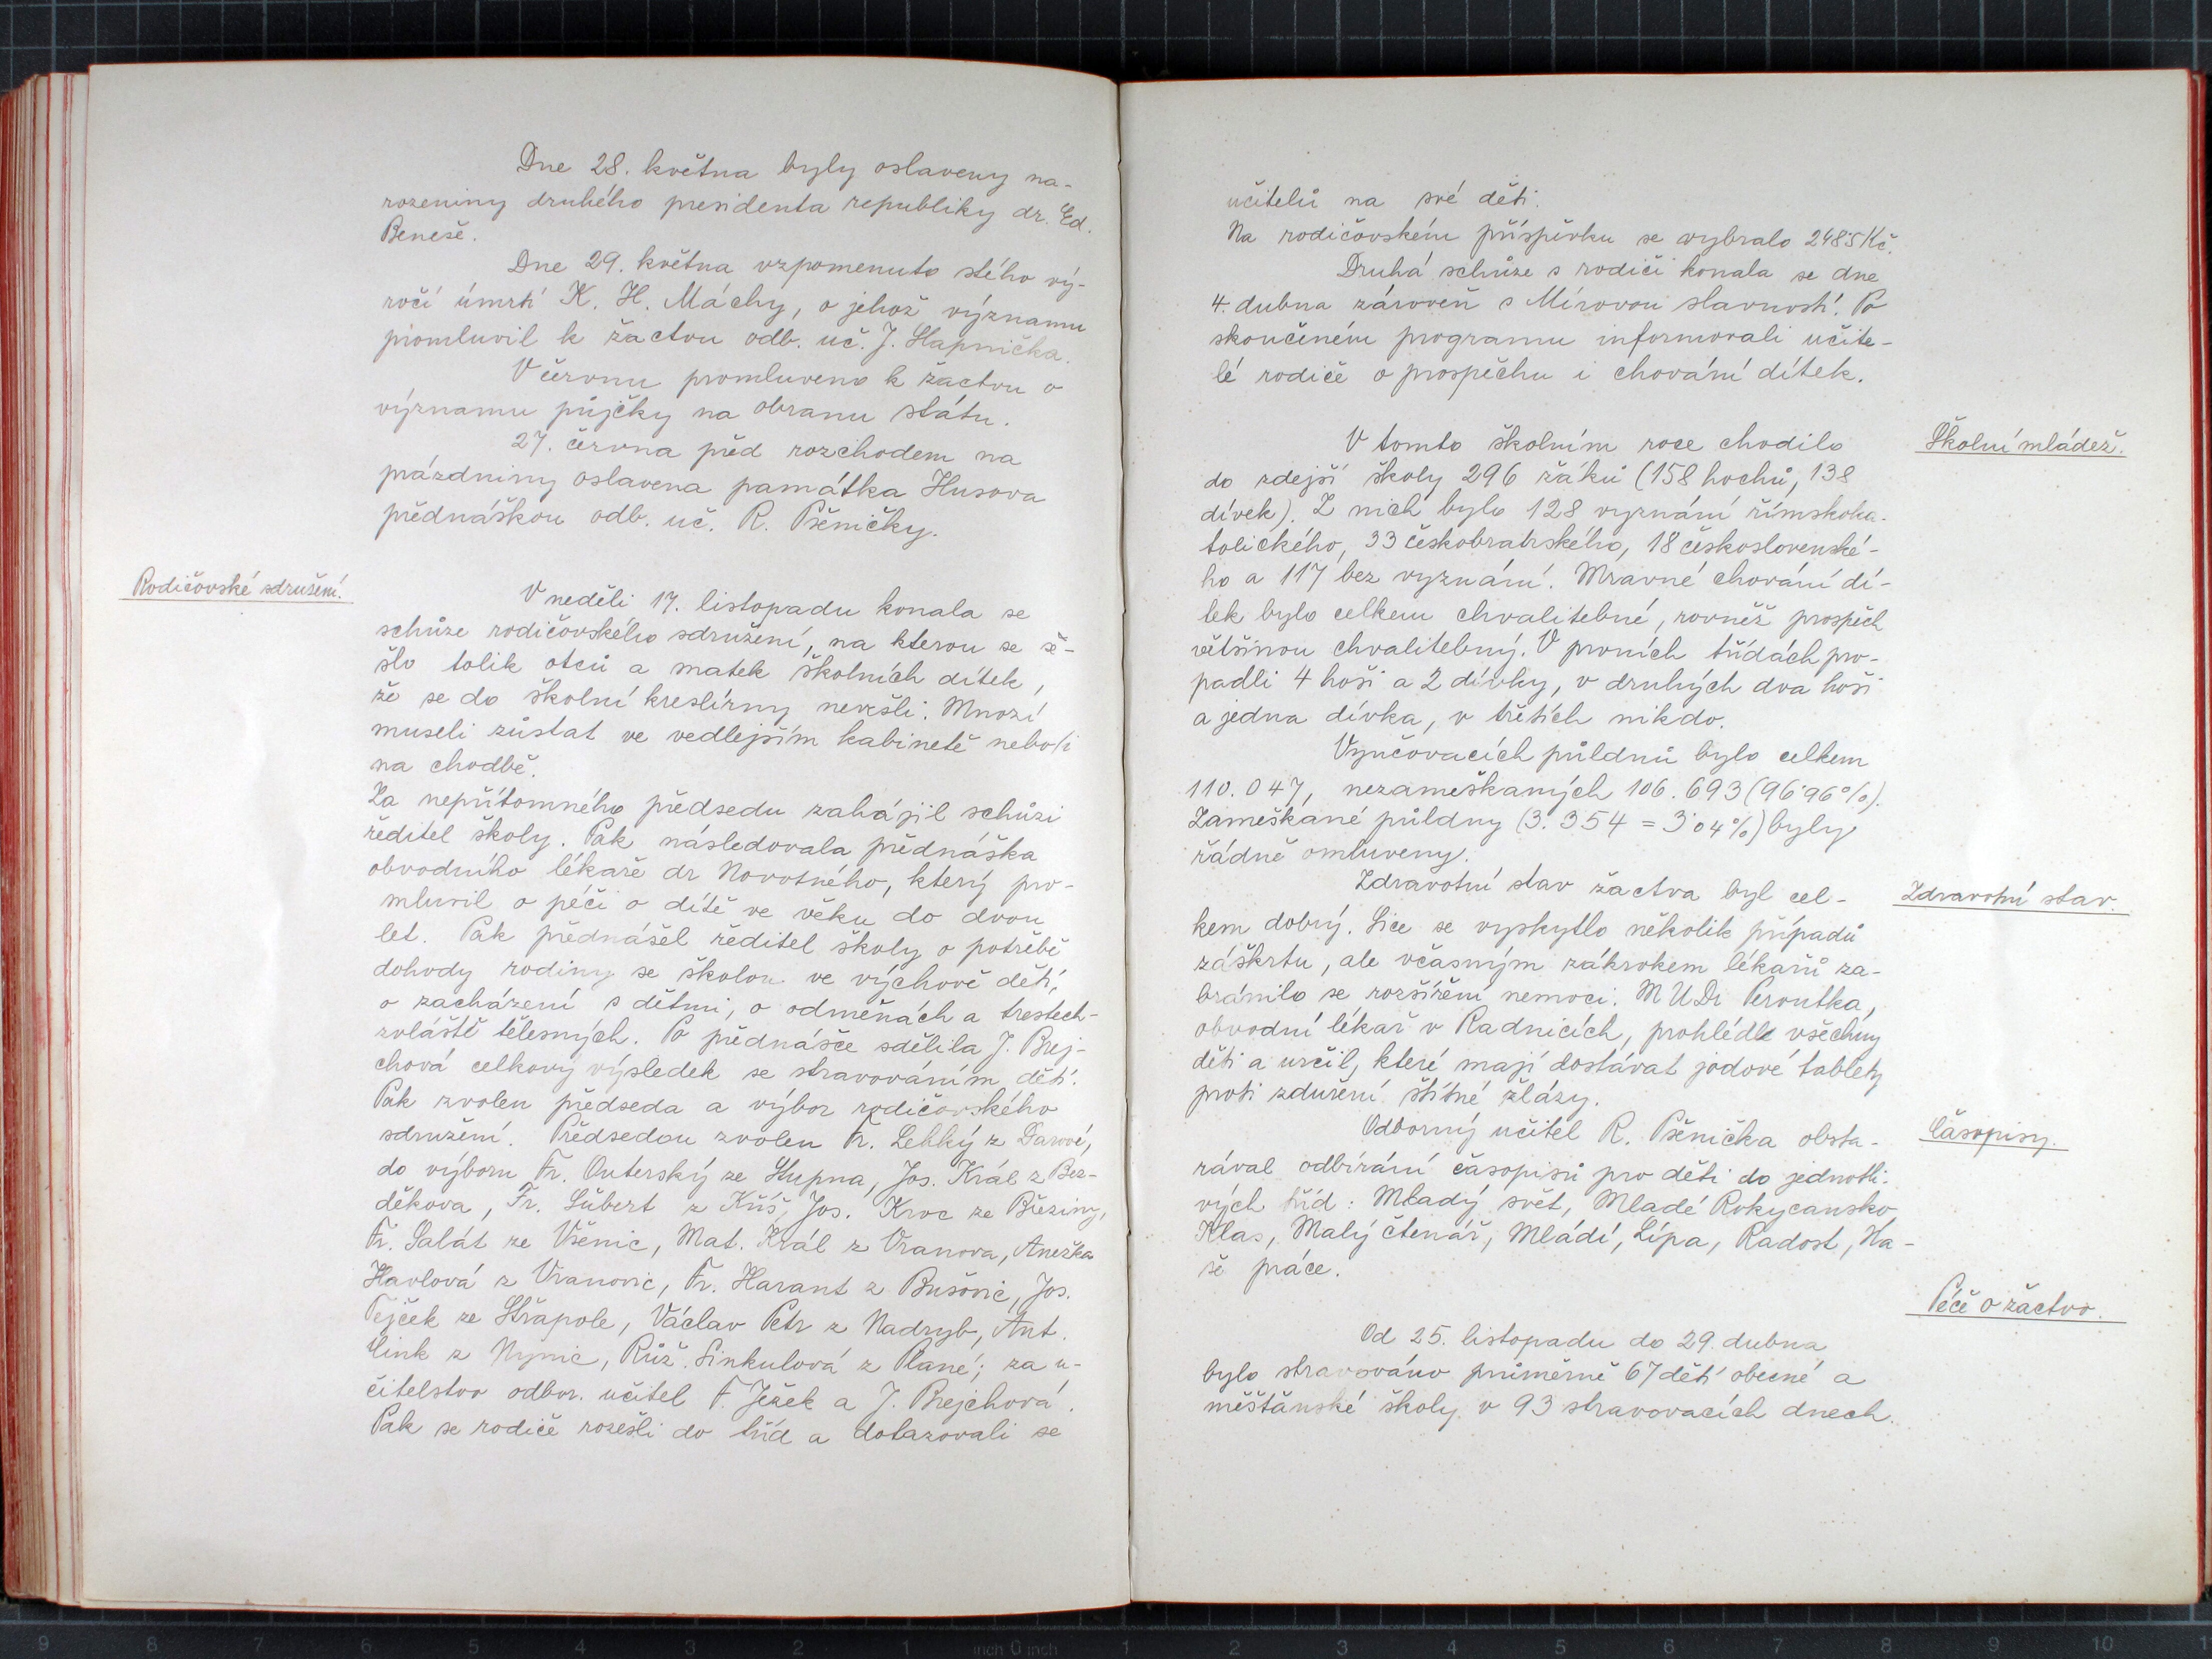 Dne 28. května byly oslaveny na-
rozeniny druhého presidenta republiky dr. Ed.
Beneše.
Dne 29. května vzpomenuto stého vý-
ročí úmrtí K. H. Máchy, o jehož významu
promluvil k žactvu odb. uč. J. Hapnička.
V červnu promluveno k žactvu o
významu půjčky na obranu státu.
27. června před rozchodem na
prázdniny oslavena památka Husova
přednáškou odb. uč. R. Pšeničky.
Rodičovské sdružení.
V neděli 17. listopadu konala se
schůze rodičovského sdružení, na kterou se se-
šlo tolik otců a matek školních dítek,
že se do školní kreslírny nevešli. Mnozí
museli zůstat ve vedlejším kabinetě nebo i
na chodbě.
Za nepřítomného předsedu zahájil schůzi
ředitel školy. Pak následovala přednáška
obvodního lékaře dr Novotného, který pro-
mluvil o péči o dítě ve věku do dvou
let. Pak přednášel ředitel školy o potřebě
dohody rodiny se školou ve výchově dětí,
o zacházení s dětmi, o odměnách a trestech-
zvláště tělesných. Po přednášce sdělila J. Brej-
chová celkový výsledek se stravováním dětí.
Pak zvolen předseda a výbor rodičovského
sdružení. Předsedou zvolen Fr. Lehký z Darové,
do výboru Fr. Outerský ze Stupna, Jos. Král z Bez-
děkova, Fr. Šubert z Kříš, Jos. Kroc ze Březiny,
Fr. Salát ze Všenic, Mat. Král z Vranova, Anežka
Havlová z Vranovic, Fr. Harant z Bušovic, Jos.
Pejček ze Střapole, Václav Petr z Nadryb, Ant.
Cink z Nynic, Růž. Sinkulová z Plané; za u-
čitelstvo odbor. učitel F. Ježek a J. Brejchová.
Pak se rodiče rozešli do tříd a dotazovali se
učitelů na své děti.
Na rodičovském příspěvku se vybralo 248·5 Kč.
Druhá schůze s rodiči konala se dne
4. dubna zároveň s Mírovou slavností. Po
skončeném programu informovali učite-
lé rodiče o prospěchu i chování dítek.
Školní mládež.
V tomto školním roce chodilo
do zdejší školy 296 žáků (158 hochů, 138
dívek). Z nich bylo 128 vyznání římskoka-
tolického, 33 českobratrského, 18 československé-
ho a 117 bez vyznání. Mravné chování dí-
tek bylo celkem chvalitebné, rovněž prospěch
většinou chvalitebný. V prvních třídách pro-
padli 4 hoši a 2 dívky, v druhých dva hoši
a jedna dívka, v třetích nikdo.
Vyučovacích půldnů bylo celkem
110.047, nezameškaných 106.693 (96·96%).
Zameškané půldny (3.354 = 3·04%) byly
řádně omluveny.
Zdravotní stav.
Zdravotní stav žactva byl cel-
kem dobrý. Sice se vyskytlo několik případů
záškrtu, ale včasným zákrokem lékařů za-
bránilo se rozšíření nemoci. MUDr Peroutka,
obvodní lékař v Radnicích, prohlédl všechny
děti a určil, které mají dostávat jodové tablety
proti zduření štítné žlázy.
Časopisy.
Odborný učitel R. Pšenička obsta-
rával odbírání časopisů pro děti do jednotli-
vých tříd: Mladý svět, Mladé Rokycansko,
Klas, Malý čtenář, Mládí, Lípa, Radost, Na-
še práce.
Péče o žactvo.
Od 25. listopadu do 29. dubna
bylo stravováno průměrně 67 dětí obecné a
měšťanské školy v 93 stravovacích dnech.
9 8 7 6 5 4 3 2 1 inch 0 inch 1 2 3 4 5 6 7 8 9 10